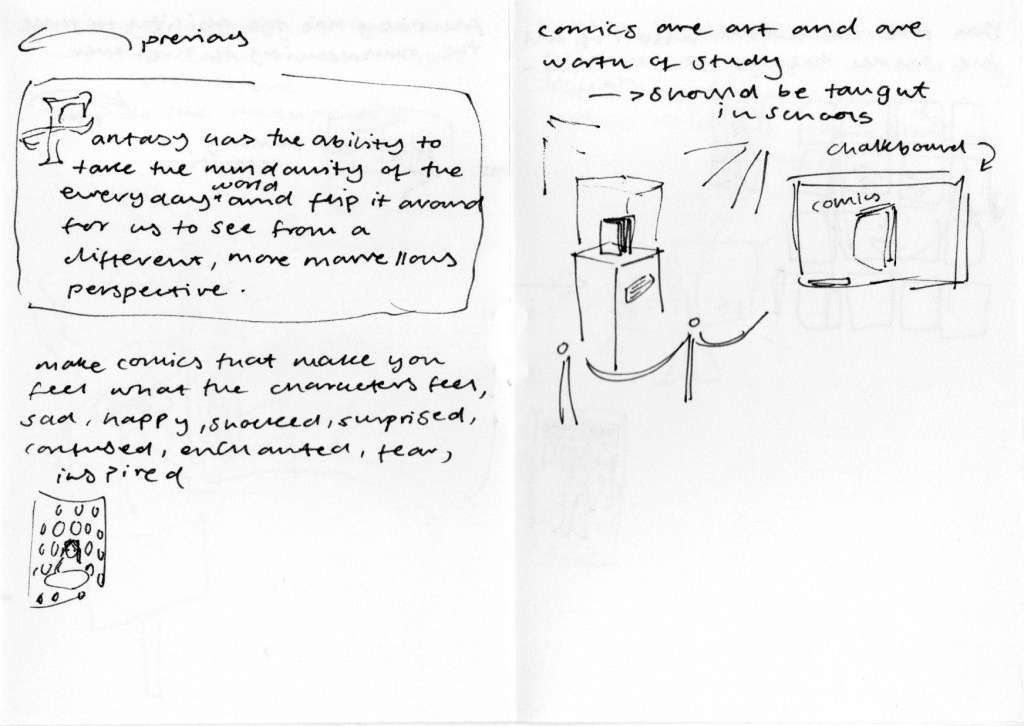 previous
Fantasy has the ability to
take the mundanity of the
everyday world and flip it around
for us to see from a
different, more marvellous
perspective.
make comics that make you
feel what the characters feel,
sad, happy, shocked, surprised,
confused, enchanted, fear,
inspired
comics are art and are
worth of study
—> should be taught
in schools
chalkboard
comics